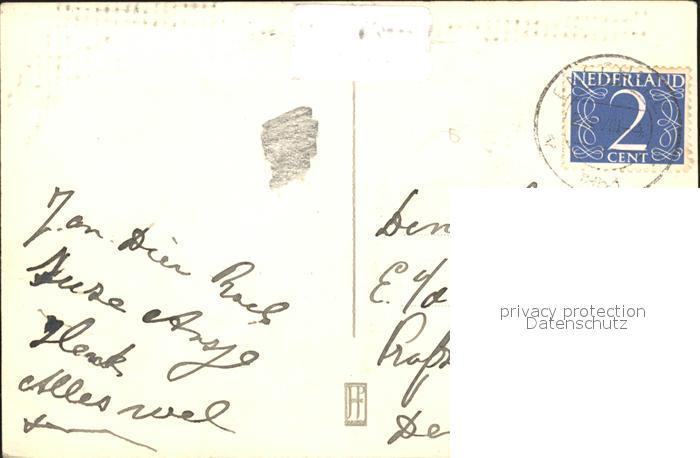 NEDERLAND
2
CENT
Jan Dien Roel
Ansje
Henk
Alles wel
Den
E. v/d
privacy protection
Datenschutz
De